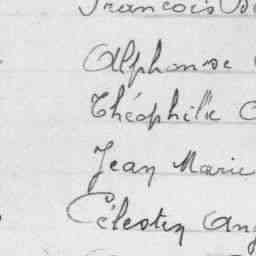 François
Alphonse
Théophille
Jean Marie
Célestin